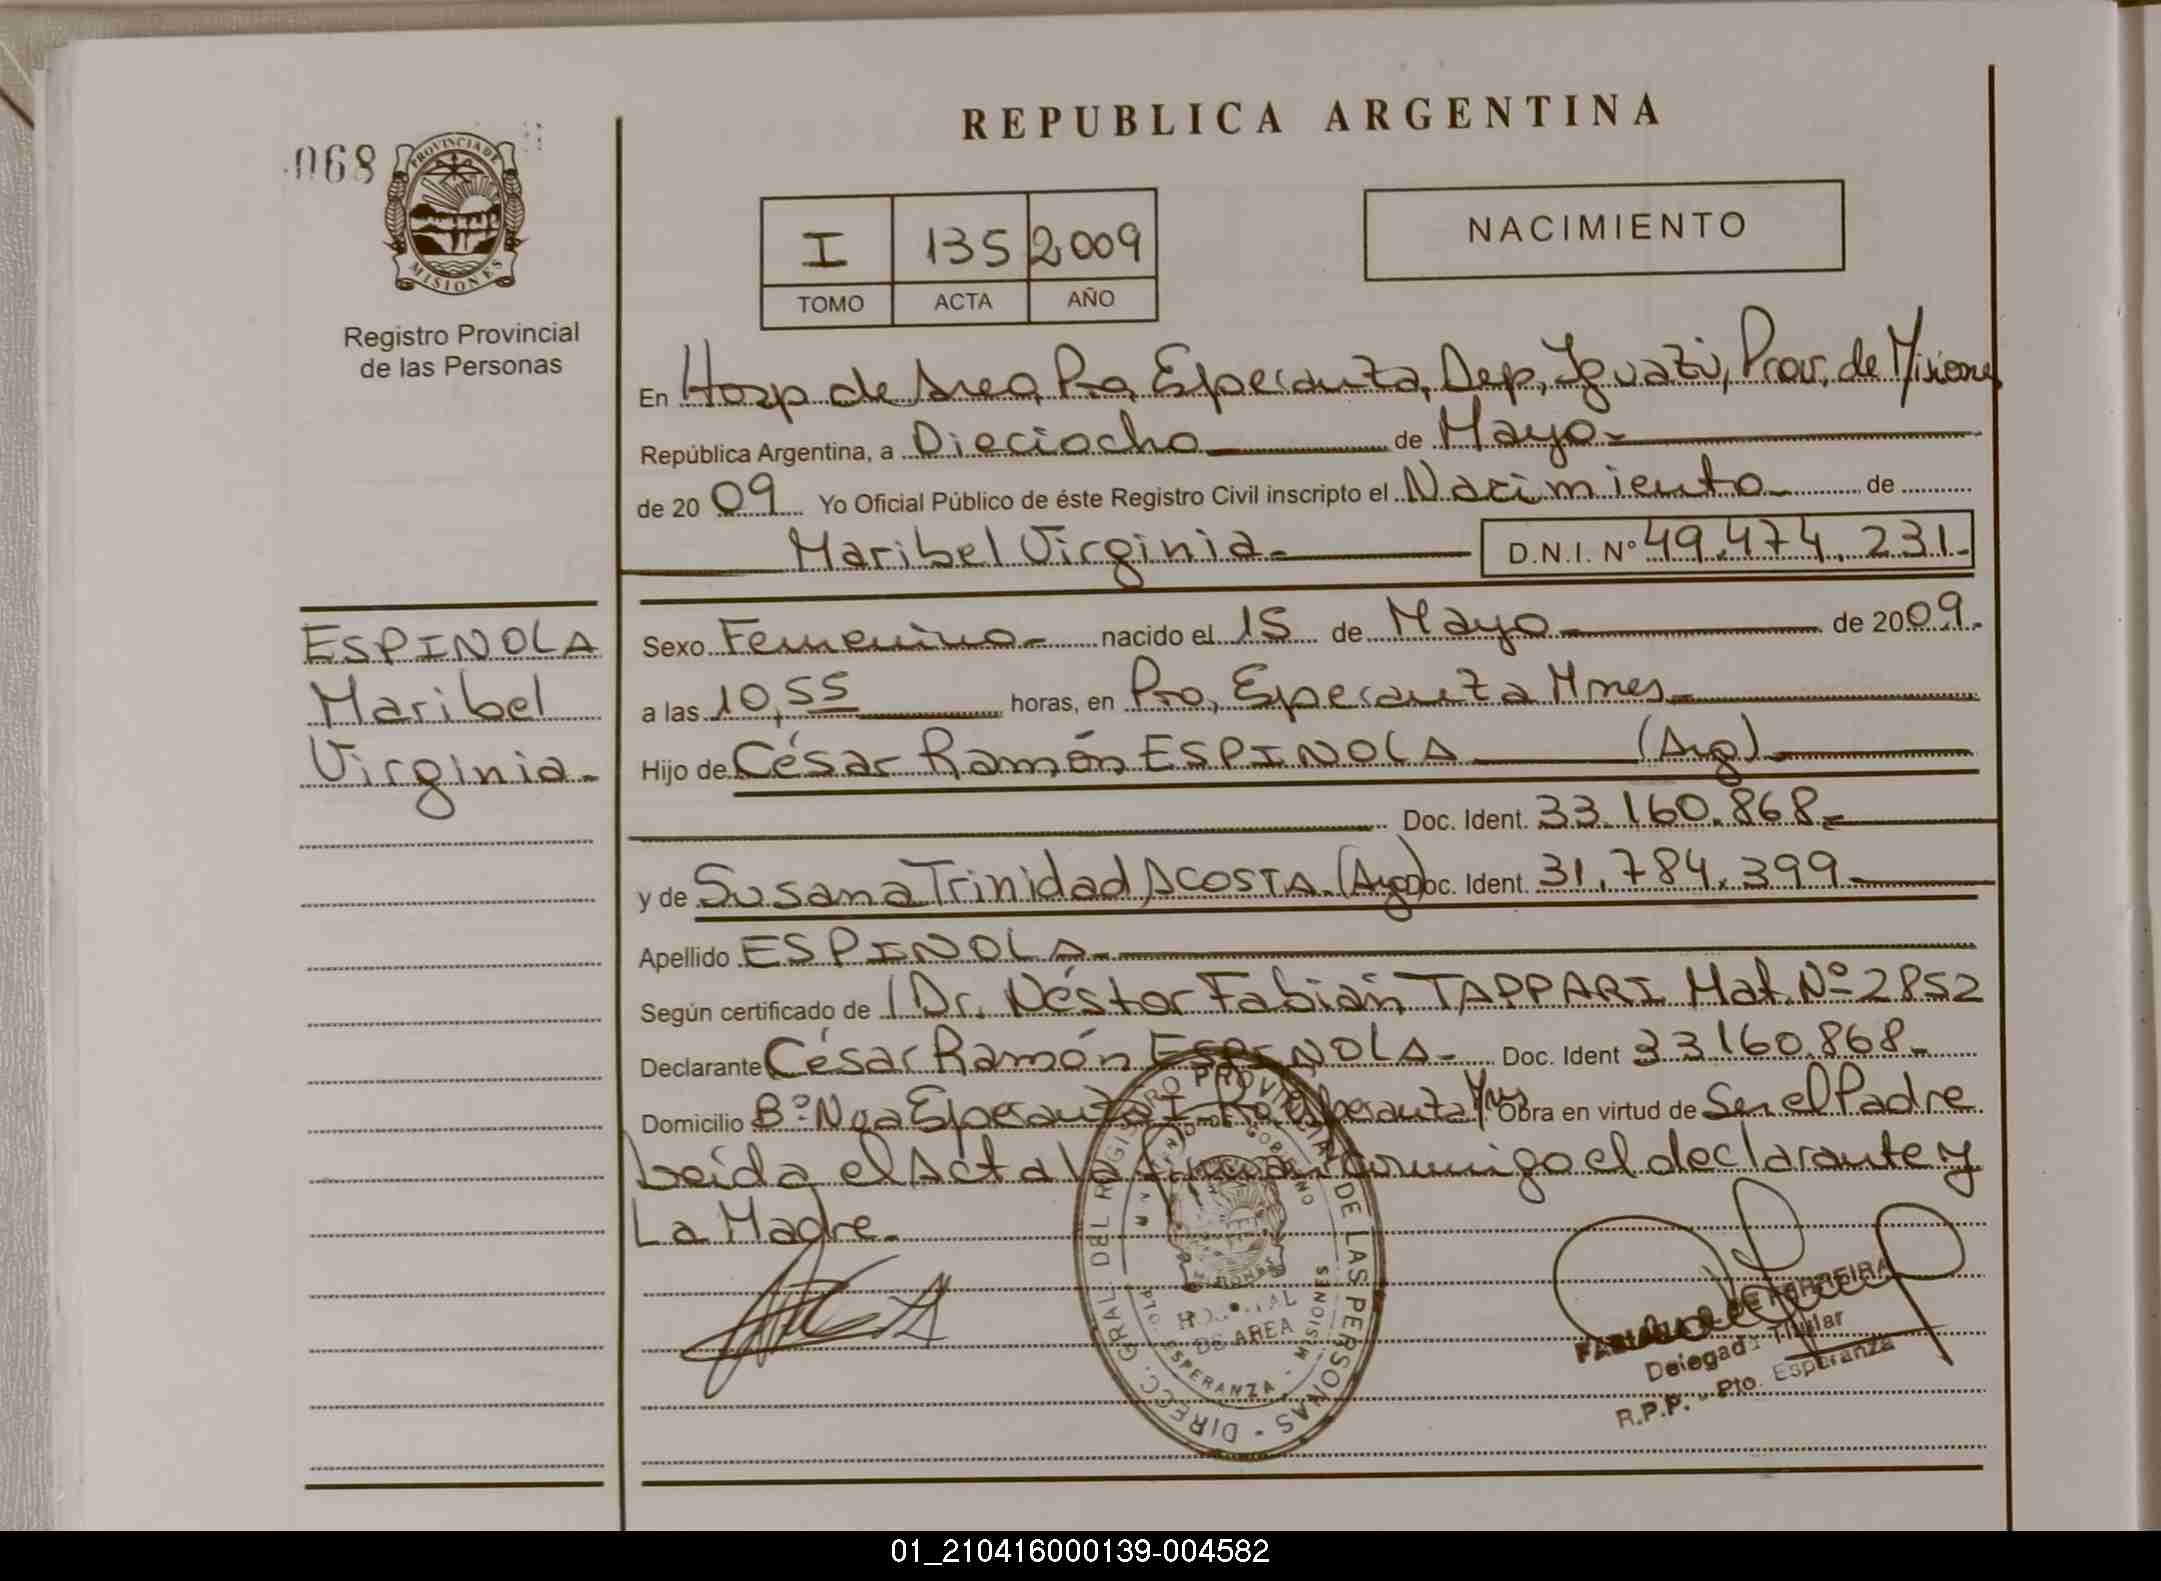 REPUBLICA ARGENTINA
068
PROVINCIA DE
MISIONES
Registro Provincial
de las Personas
I 135 2009
TOMO ACTA AÑO
NACIMIENTO
En Hosp de Area, Pto, Esperanza, Dep, Iguazú, Prov. de Misiones
República Argentina, a Dieciocho de Mayo
de 20 09 Yo Oficial Público de éste Registro Civil inscripto el Nacimiento de
Maribel Virginia D.N.I. Nº 49.474.231.
ESPINOLA
Maribel
Virginia
Sexo Femenino nacido el 15 de Mayo de 2009.
a las 10,55 horas, en Pto, Esperanza Mnes
Hijo de César Ramón ESPINOLA (Arg)
Doc. Ident. 33.160.868
y de Susana Trinidad ACOSTA. (Arg) Doc. Ident. 31.784.399
Apellido ESPINOLA
Según certificado de / Dr. Néstor Fabián TAPPARI Mat. Nº 2852
Declarante César Ramón ESPINOLA Doc. Ident 33160.868
Domicilio Bº Nva Esperanza Pto Esperanza Mnes Obra en virtud de Ser el Padre
Leída el Acta la firman conmigo el declarante y
La Madre.
DIRECC. GRAL. DEL REGISTRO PROVINCIAL DE LAS PERSONAS
HOSPITAL
DE AREA
ESPERANZA - MISIONES
FERREIRA
Delegada Titular
R.P.P. - Pto. Esperanza
01_210416000139-004582